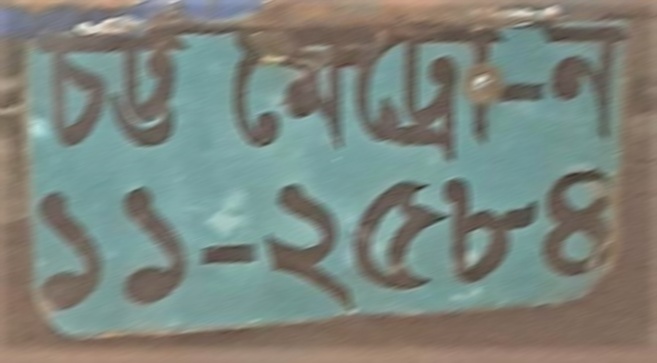 চট্ট মেট্রো-ন
১১-২৫৮৪